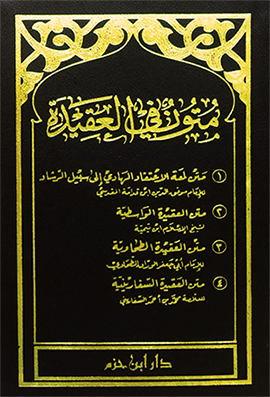 متون في العقيدة
١ متن لمعة الاعتقاد الهادي إلى سبيل الرشاد
للإمام موفق الدين ابن قدامة المقدسي
٢ متن العقيدة الواسطية
لشيخ الإسلام ابن تيمية
٣ متن العقيدة الطحاوية
للإمام أبي جعفر الوراق الطحاوي
٤ متن العقيدة السفارينية
للعلامة محمد بن أحمد السفاريني
دار ابن حزم